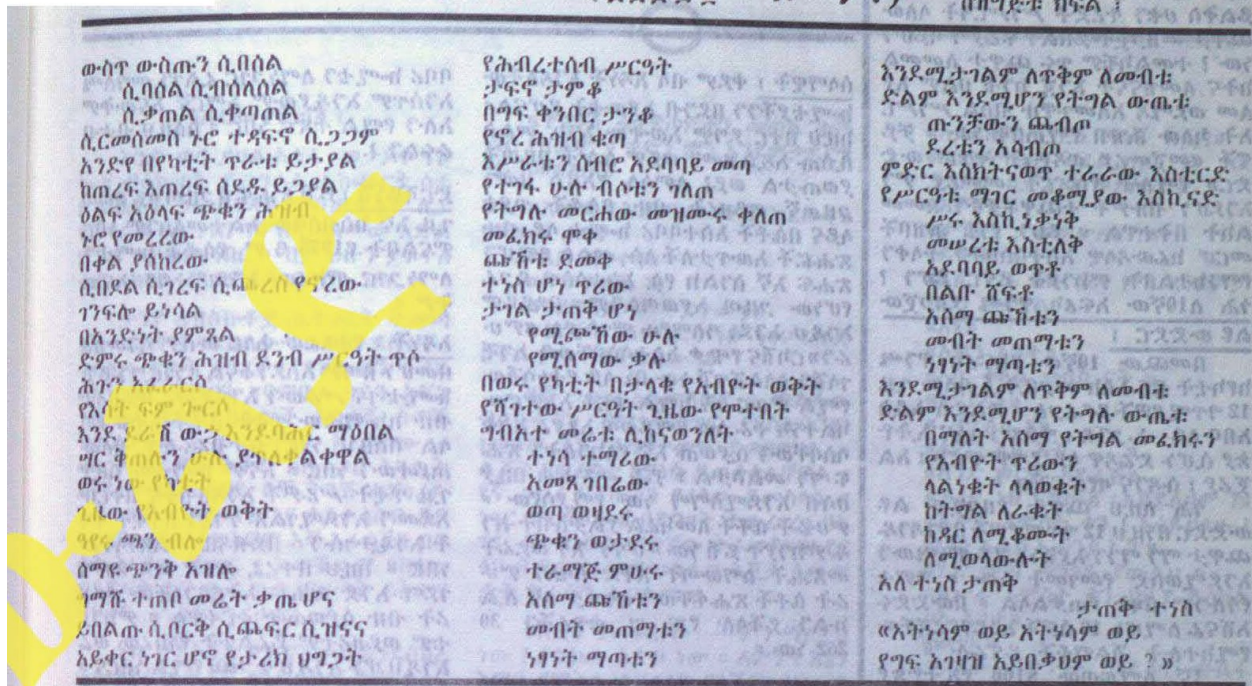 በዘግይቱ ክፍል ፤
ውስጥ ውስጡን ሲበሰል
ሲባሰል ሲብሰለሰል
ሲቃጠል ሲቀጣጠል
ሲርመሰመስ ኑሮ ተዳፍኖ ሲጋጋም
አንድየ በየካቲት ጥራቱ ይታያል
ከጠረፍ እጠረፍ ሰደዱ ይጋያል
ዕልፍ አዕላፍ ጭቁን ሕዝብ
ኑሮ የመረረው
በቀል ያሰከረው
ሲበደል ሲገረፍ ሲጨረስ የኖረው
ገንፍሎ ይነሳል
በአንድነት ያምጻል
ድምሩ ጭቁን ሕዝብ ደንብ ሥርዓት ጥሶ
ሕጉን አፈራርሶ
የእሳት ፍም ጐርሶ
እንደ ደራሽ ውኃ እንደባሕር ማዕበል
ሣር ቅጠሉን ሁሉ ያጥለቀልቀዋል
ወሩ ነው የካቲት
ጊዜው የአብዮት ወቅት
ዓየሩ ጫን ብሎ
ሰማዩ ጭንቅ አዝሎ
ጎማሹ ተጠቦ መሬት ቃጤ ሆና
ይበልጡ ሲቦርቅ ሲጨፍር ሲዝናና
አይቀር ነገር ሆኖ የታሪክ ህግጋት
የሕብረተሰብ ሥርዓት
ታፍኖ ታምቆ
በግፍ ቀንበር ታንቆ
የኖረ ሕዝብ ቁጣ
እሥራቱን ሰብሮ አደባባይ መጣ
የተገፋ ሁሉ ብሶቱን ገለጠ
የትግሉ መርሐው መዝሙሩ ቀለጠ
መፈክሩ ሞቀ
ጩኸቱ ደመቀ
ተነስ ሆነ ጥሪው
ታገል ታጠቅ ሆነ
የሚጮኸው ሁሉ
የሚሰማው ቃሉ
በወሩ የካቲት በታላቁ የአብዮት ወቅት
የሻገተው ሥርዓት ጊዜው የሞተበት
ግብአተ መሬቱ ሊከናወንለት
ተነሳ ተማሪው
አመጸ ገበሬው
ወጣ ወዛደሩ
ጭቁን ወታደሩ
ተራማጅ ምሁሩ
አሰማ ጩኸቱን
መብት መጠማቱን
ነፃነት ማጣቱን
እንደሚታገልም ለጥቅም ለመብቱ
ድልም እንደሚሆን የትግል ውጤቱ
ጡንቻውን ጨብጦ
ደረቱን አሳብጦ
ምድር እስክትናወጥ ተራራው እስቲርድ
የሥርዓቱ ማገር መቆሚያው እስኪናድ
ሥሩ እስኪነቃነቅ
መሠረቱ እስቲለቅ
አደባባይ ወጥቶ
በልቡ ሸፍቶ
አሰማ ጩኸቱን
መብት መጠማቱን
ነፃነት ማጣቱን
እንደሚታገልም ለጥቅም ለመብቱ
ድልም እንደሚሆን የትግሉ ውጤቱ
በማለት አሰማ የትግል መፈክሩን
የአብዮት ጥሪውን
ላልነቁት ላላወቁት
ከትግል ለራቁት
ከዳር ለሚቆሙት
ለሚወላውሉት
አለ ተነስ ታጠቅ
ታጠቅ ተነስ
«አትነሳም ወይ አትነሳም ወይ
የግፍ አገዛዝ አይበቃህም ወይ ? »